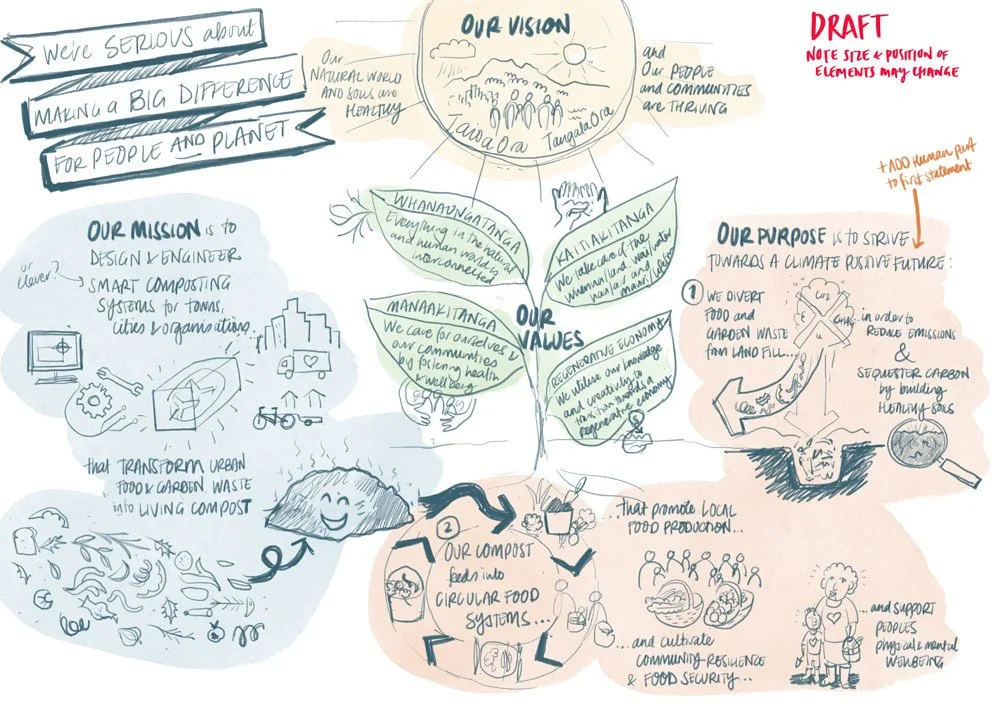 We're SERIOUS about
MAKING a BIG DIFFERENCE
FOR PEOPLE AND PLANET
OUR VISION
Our
NATURAL WORLD
AND SOILS are
HEALTHY
and
Our PEOPLE
and COMMUNITIES
are THRIVING
Taiao Ora Tangata Ora
DRAFT
NOTE SIZE & POSITION OF
ELEMENTS MAY CHANGE
+ ADD Human part
to first statement
OUR MISSION is to
DESIGN & ENGINEER
or
clever?
SMART COMPOSTING
SYSTEMS for towns,
cities & organisations...
that TRANSFORM URBAN
FOOD & GARDEN WASTE
into LIVING COMPOST
WHANAUNGATANGA
Everything in the natural
and human world is
interconnected
KAITIAKITANGA
We take care of the
whenua/land, wai/water
hau/air and
mauri/lifeforce
MANAAKITANGA
We care for ourselves &
our communities
by fostering health
& wellbeing
OUR
VALUES
REGENERATIVE ECONOMY
We utilise our knowledge
and creativity to
transition towards a
regenerative economy
$
OUR PURPOSE is to STRIVE
TOWARDS A CLIMATE POSITIVE FUTURE:
1 WE DIVERT
FOOD and
GARDEN WASTE
from LAND FILL...
CO2
CH4
...in order to
REDUCE EMISSIONS
&
SEQUESTER CARBON
by building
HEALTHY SOILS
2
OUR COMPOST
feeds into
CIRCULAR FOOD
SYSTEMS...
...that promote LOCAL
FOOD PRODUCTION...
...and cultivate
COMMUNITY RESILIENCE
& FOOD SECURITY...
...and SUPPORT
PEOPLES
physical & mental
WELLBEING